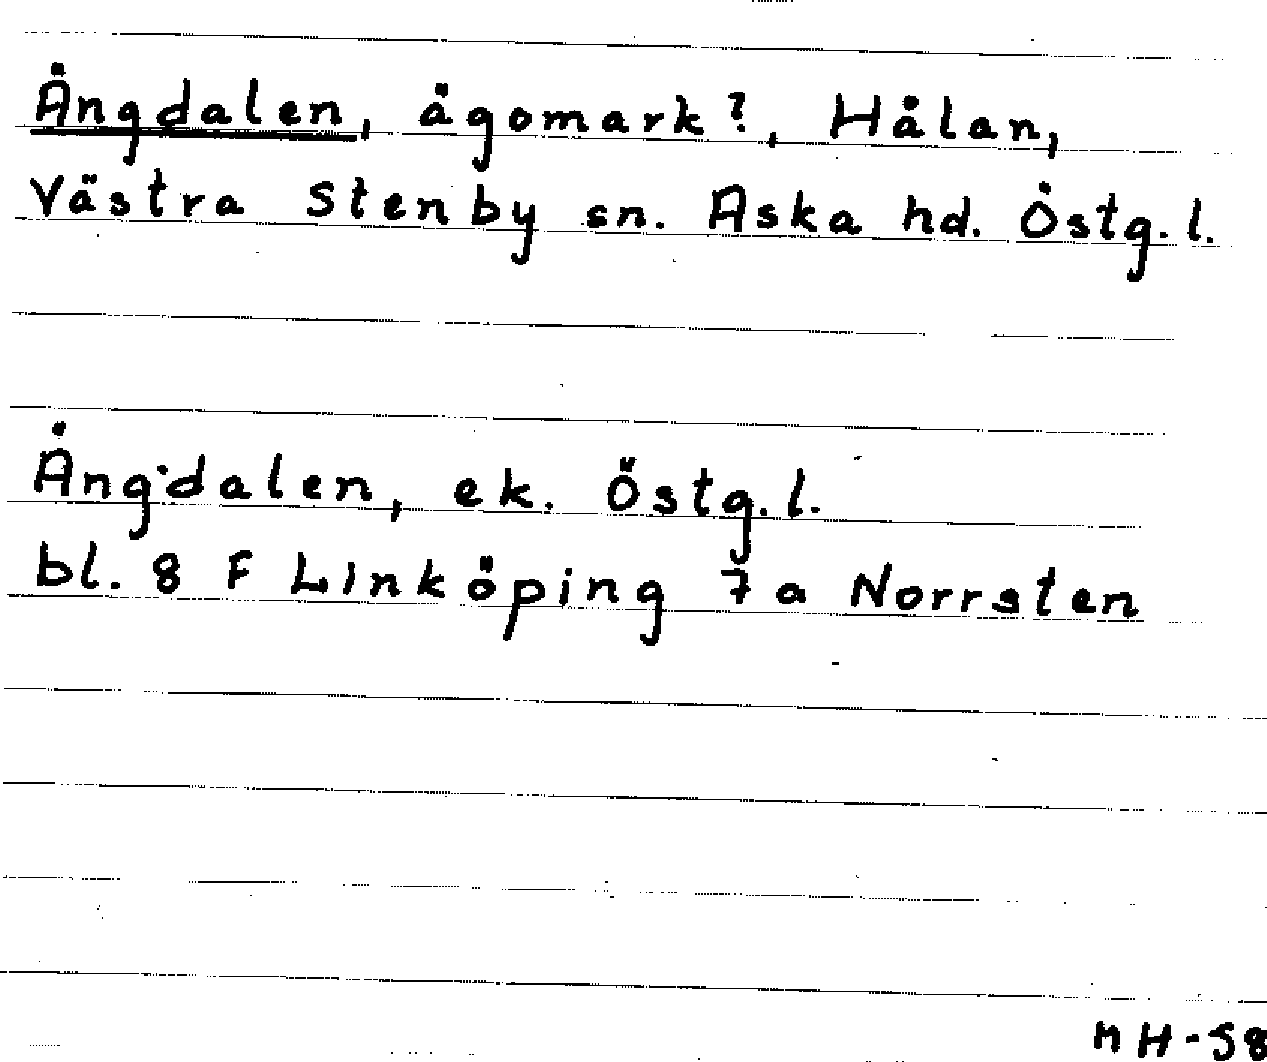 Ängdalen, ägomark?, Hålan,
Västra Stenby sn. Aska hd. Östg.l.
Ängdalen, ek. Östg.l.
bl. 8 F Linköping 7 a Norrsten
MH-58